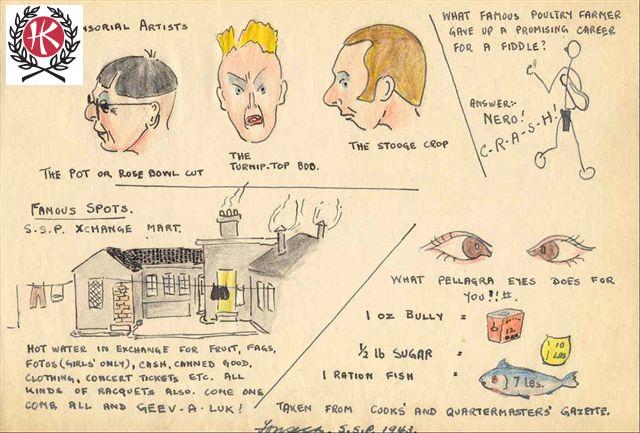 HK
NSORIAL ARTISTS
THE POT OR ROSE BOWL CUT
THE
TURNIP-TOP BOB.
THE STOOGE CROP
WHAT FAMOUS POULTRY FARMER
GAVE UP A PROMISING CAREER
FOR A FIDDLE?
ANSWER:-
NERO!
C-R-A-S-H!
FAMOUS SPOTS.
S.S.P. XCHANGE MART.
HOT WATER IN EXCHANGE FOR FRUIT, FAGS,
FOTOS (GIRLS' ONLY), CASH, CANNED GOOD,
CLOTHING, CONCERT TICKETS ETC. ALL
KINDS OF RACQUETS ALSO. COME ONE
COME ALL AND GEEV-A-LUK!
WHAT PELLAGRA EYES DOES FOR
YOU!!#.
1 OZ BULLY =
12 OZS
½ lb SUGAR =
10 LBS
1 RATION FISH =
7 Lbs.
TAKEN FROM COOKS' AND QUARTERMASTERS' GAZETTE.
Fonseca. S.S.P. 1943.